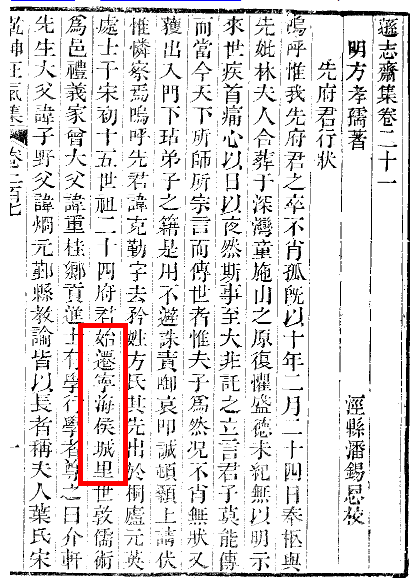 遜志齋集卷二十一
明方孝孺著
涇縣潘錫恩校
先府君行狀
嗚呼惟我先府君之卒不肖孤旣以十年二月二十四日奉柩與
先妣林夫人合葬于深灣童施山之原復懼盛德未紀無以明示
來世疾首痛心以日以夜然斯事至大非託之立言君子莫能傳
而當今天下所師所宗言而傳世者惟夫子爲然況不肖無狀又
獲出入門下玷弟子之籍是用不避誅責衘哀叩誠頓顙上請伏
惟憐察焉嗚呼先君諱克勤字去矜姓方氏其先出於桐廬元英
處士干宋初十五世祖二十四府君始遷寧海侯城里世敦儒術
爲邑禮義家曾大父諱重桂鄉貢進士有學行學者尊之曰介軒
先生大父諱子野父諱烱元鄞縣教諭皆以長者稱夫人葉氏宋
乾坤正氣集
一